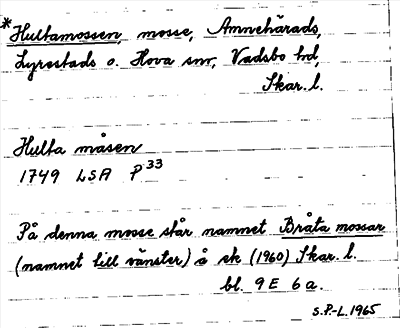 *Hultamossen, mosse, Amnehärads,
Lyrestads o. Hova snr, Vadsbo hd,
Skar. l.
Hulta måsen
1749 LSA P 33
På denna mosse står namnet Bråta mossar
(namnet till vänster) å ek (1960) Skar. l.
bl. 9E 6a.
S.P.-L. 1965